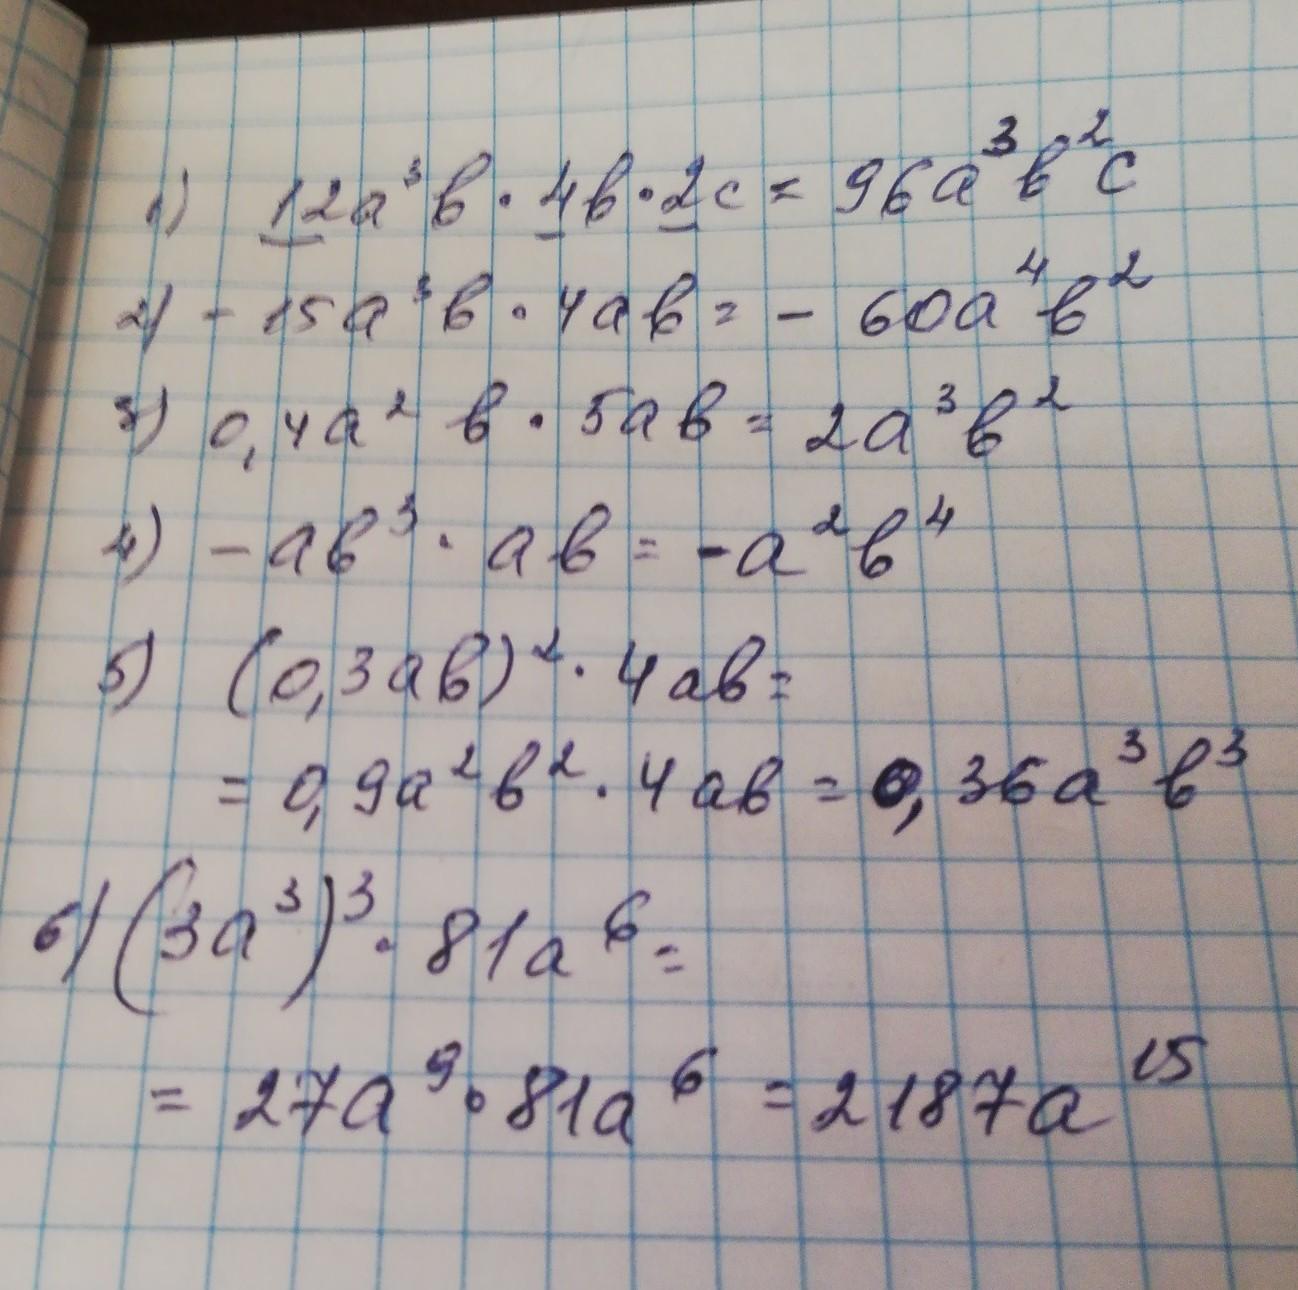 1) 12a³b · 4b · 2c = 96a³b²c
2) - 15a³b · 4ab = - 60a⁴b²
3) 0,4a² b · 5ab = 2a³b²
4) - ab³ · ab = -a²b⁴
5) (0,3ab)² · 4ab =
= 0,9a²b² · 4ab = 0,36a³b³
6) (3a³)³ · 81a⁶ =
= 27a⁹ · 81a⁶ = 2187a¹⁵